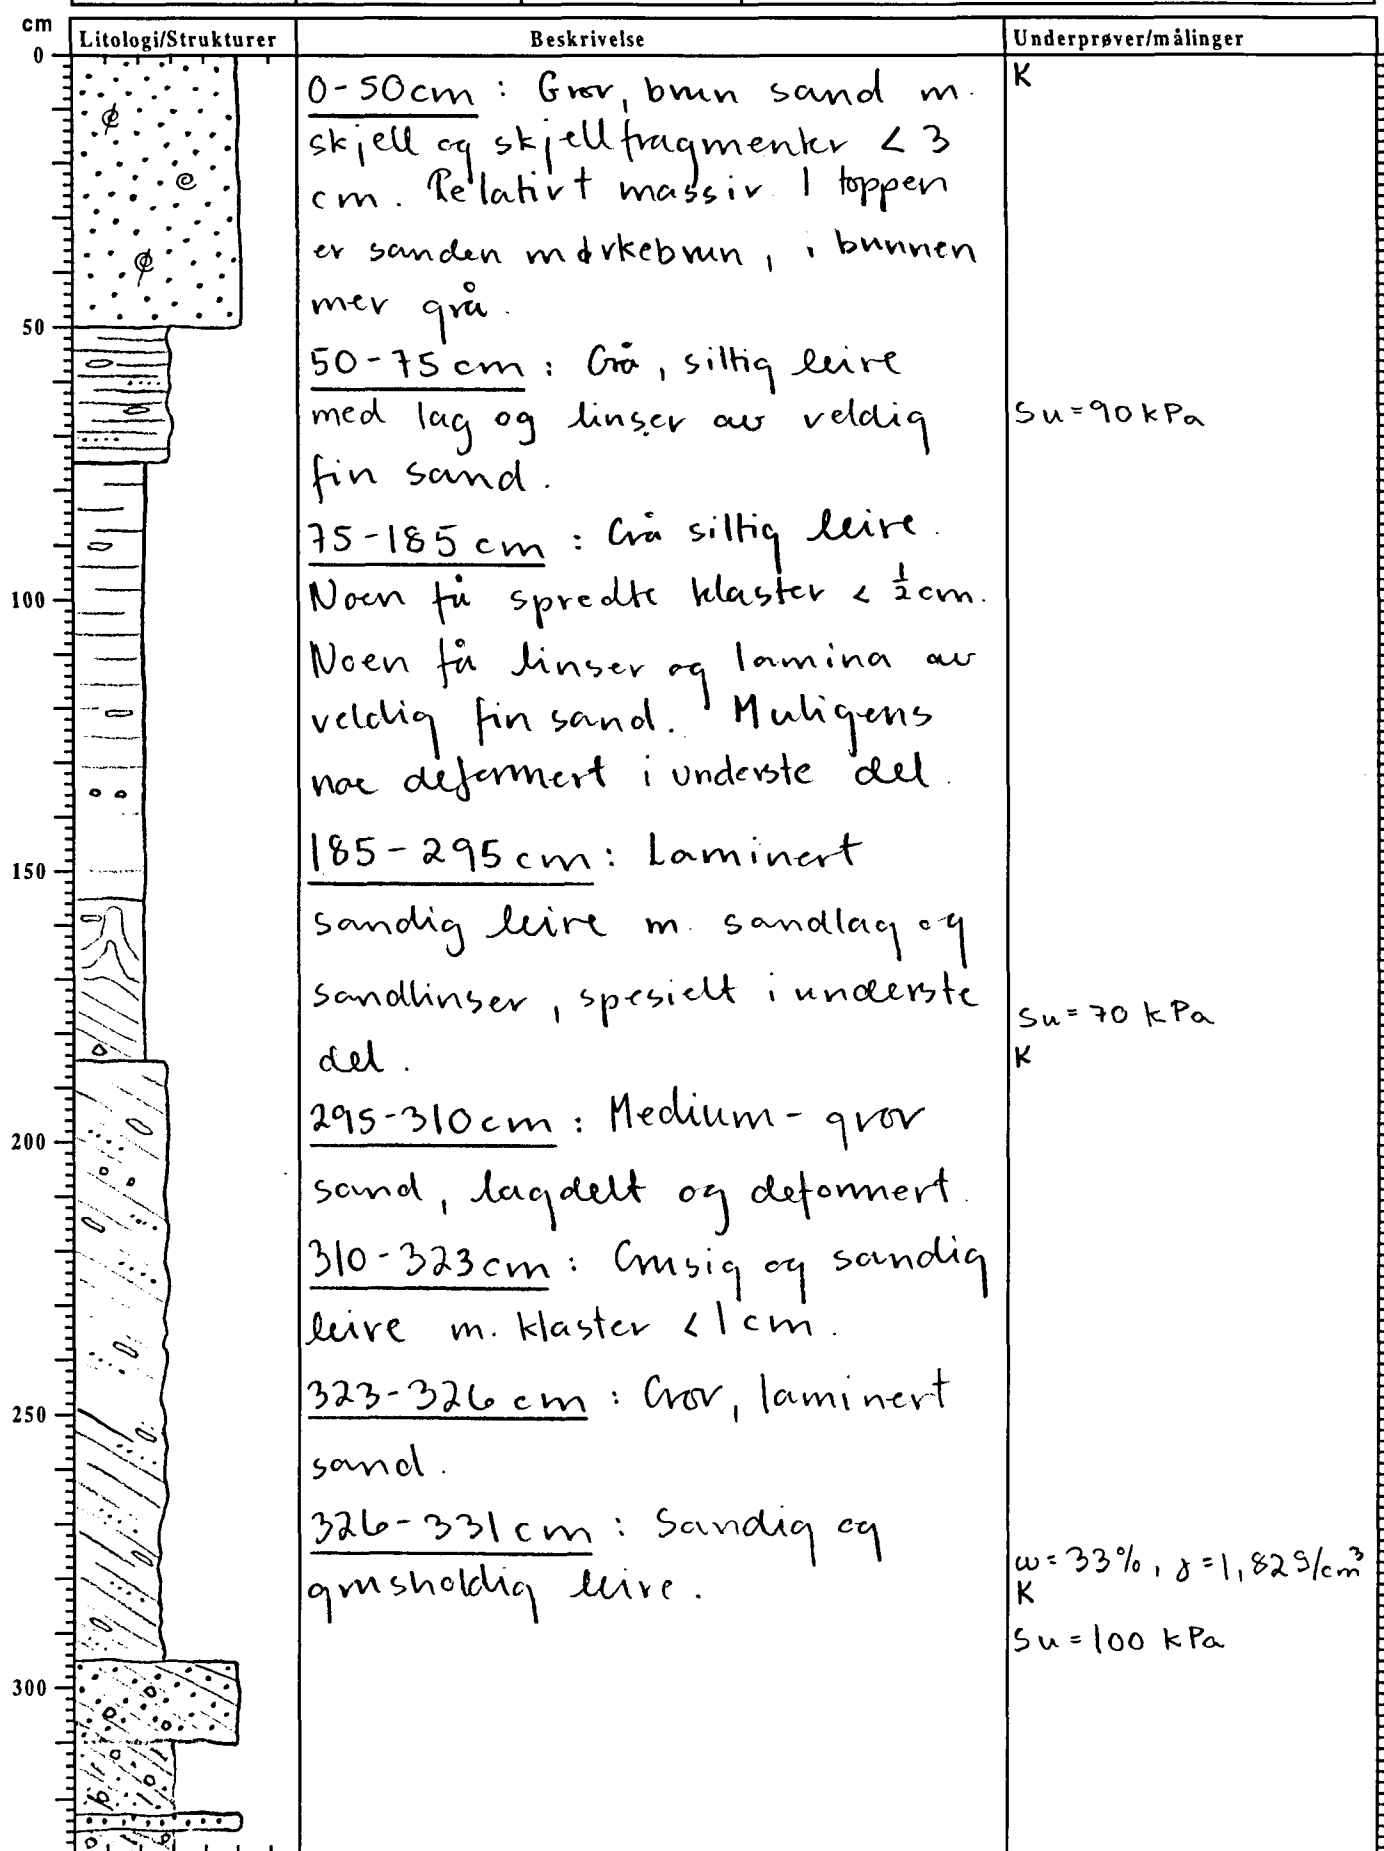 cm
Litologi/Strukturer
Beskrivelse
Underprøver/målinger
0
50
100
150
200
250
300
0-50cm : Grov, brun sand m.
skjell og skjellfragmenter < 3
cm. Relativt massiv. I toppen
er sanden mørkebrun, i bunnen
mer grå.
50-75 cm : Grå, siltig leire
med lag og linser av veldig
fin sand.
75-185 cm : Grå siltig leire.
Noen få spredte klaster < ½ cm.
Noen få linser og lamina av
veldig fin sand. Muligens
noe deformert i underste del.
185-295 cm : Laminert
sandig leire m. sandlag og
sandlinser, spesielt i underste
del.
295-310 cm : Medium-grov
sand, lagdelt og deformert.
310-323 cm : Grusig og sandig
leire m. klaster <1 cm.
323-326 cm : Grov, laminert
sand.
326-331 cm : Sandig og
grusholdig leire.
K
Su=90 kPa
Su=70 kPa
K
w=33%, γ=1,82 g/cm³
K
Su=100 kPa